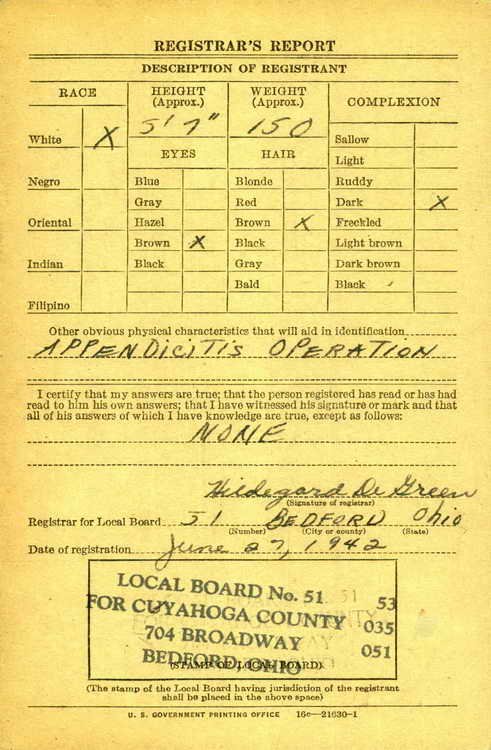 REGISTRAR'S REPORT
DESCRIPTION OF REGISTRANT
RACE
HEIGHT
(Approx.)
WEIGHT
(Approx.)
COMPLEXION
5' 7"
150
White X
EYES
HAIR
Sallow
Light
Negro
Blue
Blonde
Ruddy
Gray
Red
Dark X
Oriental
Hazel
Brown X
Freckled
Brown X
Black
Light brown
Indian
Black
Gray
Dark brown
Bald
Black
Filipino
Other obvious physical characteristics that will aid in identification
APPENDICITIS OPERATION
I certify that my answers are true; that the person registered has read or has had
read to him his own answers; that I have witnessed his signature or mark and that
all of his answers of which I have knowledge are true, except as follows:
NONE
Hildegard De Green
(Signature of registrar)
Registrar for Local Board 51 BEDFORD Ohio
(Number) (City or county) (State)
Date of registration June 27, 1942
LOCAL BOARD No. 51 53
FOR CUYAHOGA COUNTY 035
704 BROADWAY 051
BEDFORD, OHIO
(STAMP OF LOCAL BOARD)
(The stamp of the Local Board having jurisdiction of the registrant
shall be placed in the above space)
U. S. GOVERNMENT PRINTING OFFICE 16c—21630-1